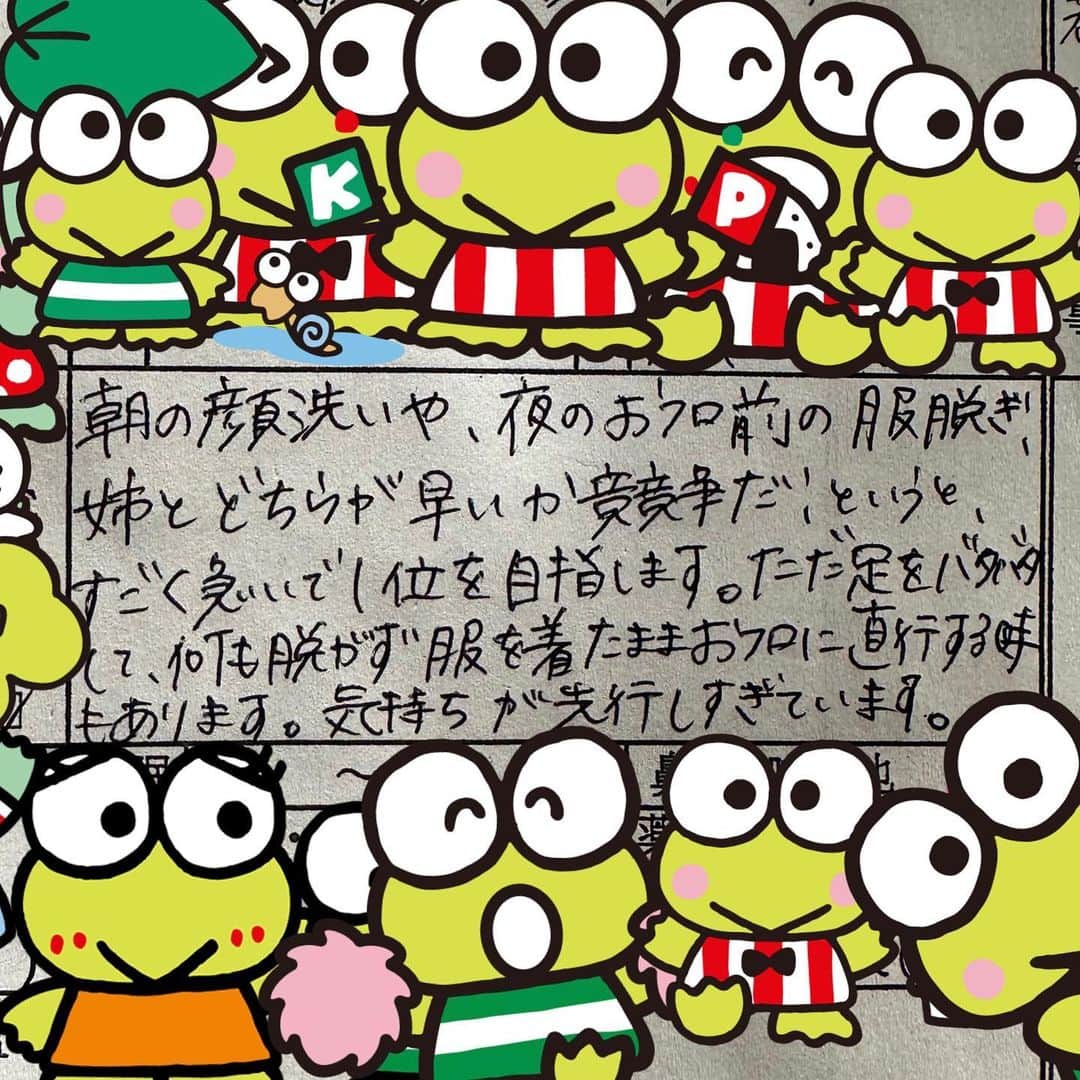 K
P
朝の顔洗いや、夜のおフロ前の服脱ぎ、
姉とどちらが早いか競争だ！というと、
すごく急いで1位を目指します。ただ足をバタバタ
して、何も脱がず服を着たままおフロに直行する時
もあります。気持ちが先行しすぎています。
～